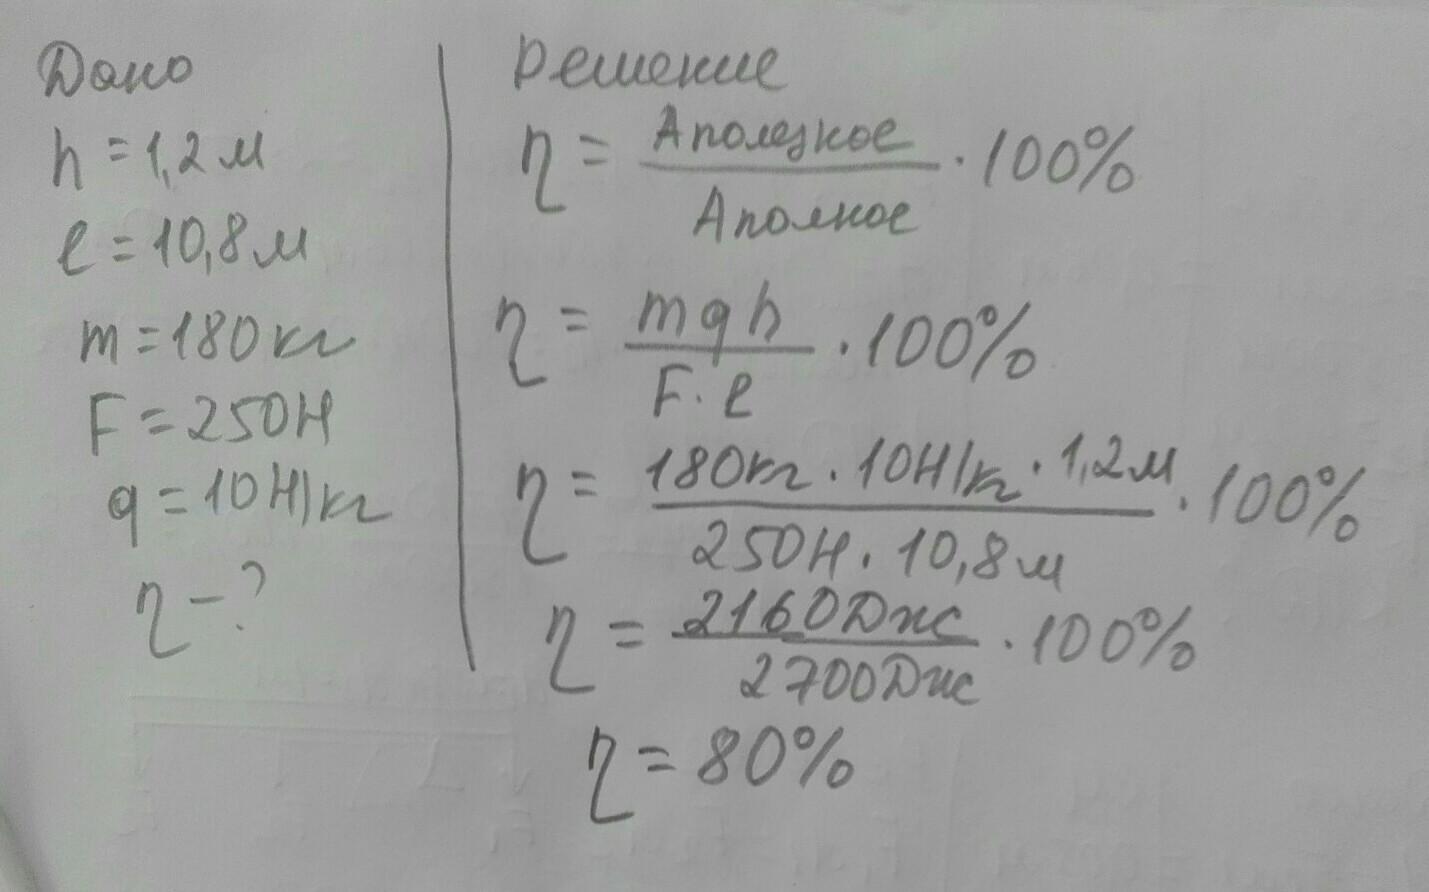 Дано
h = 1,2 м
ℓ = 10,8 м
m = 180 кг
F = 250Н
g = 10Н/кг
η - ?
Решение
η = Aполезное / Aполное · 100%
η = mgh / F · ℓ · 100%
η = 180кг · 10Н/кг · 1,2м / 250Н · 10,8м · 100%
η = 2160Дж / 2700Дж · 100%
η = 80%